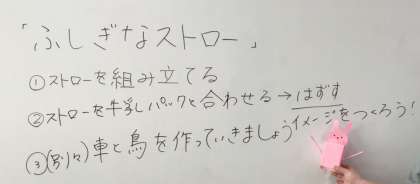 「ふしぎなストロー」
①ストローを組み立てる
②ストローを牛乳パックと合わせる→はずす
イメージをつくろう!
③(別々)車と鳥を作っていきましょう